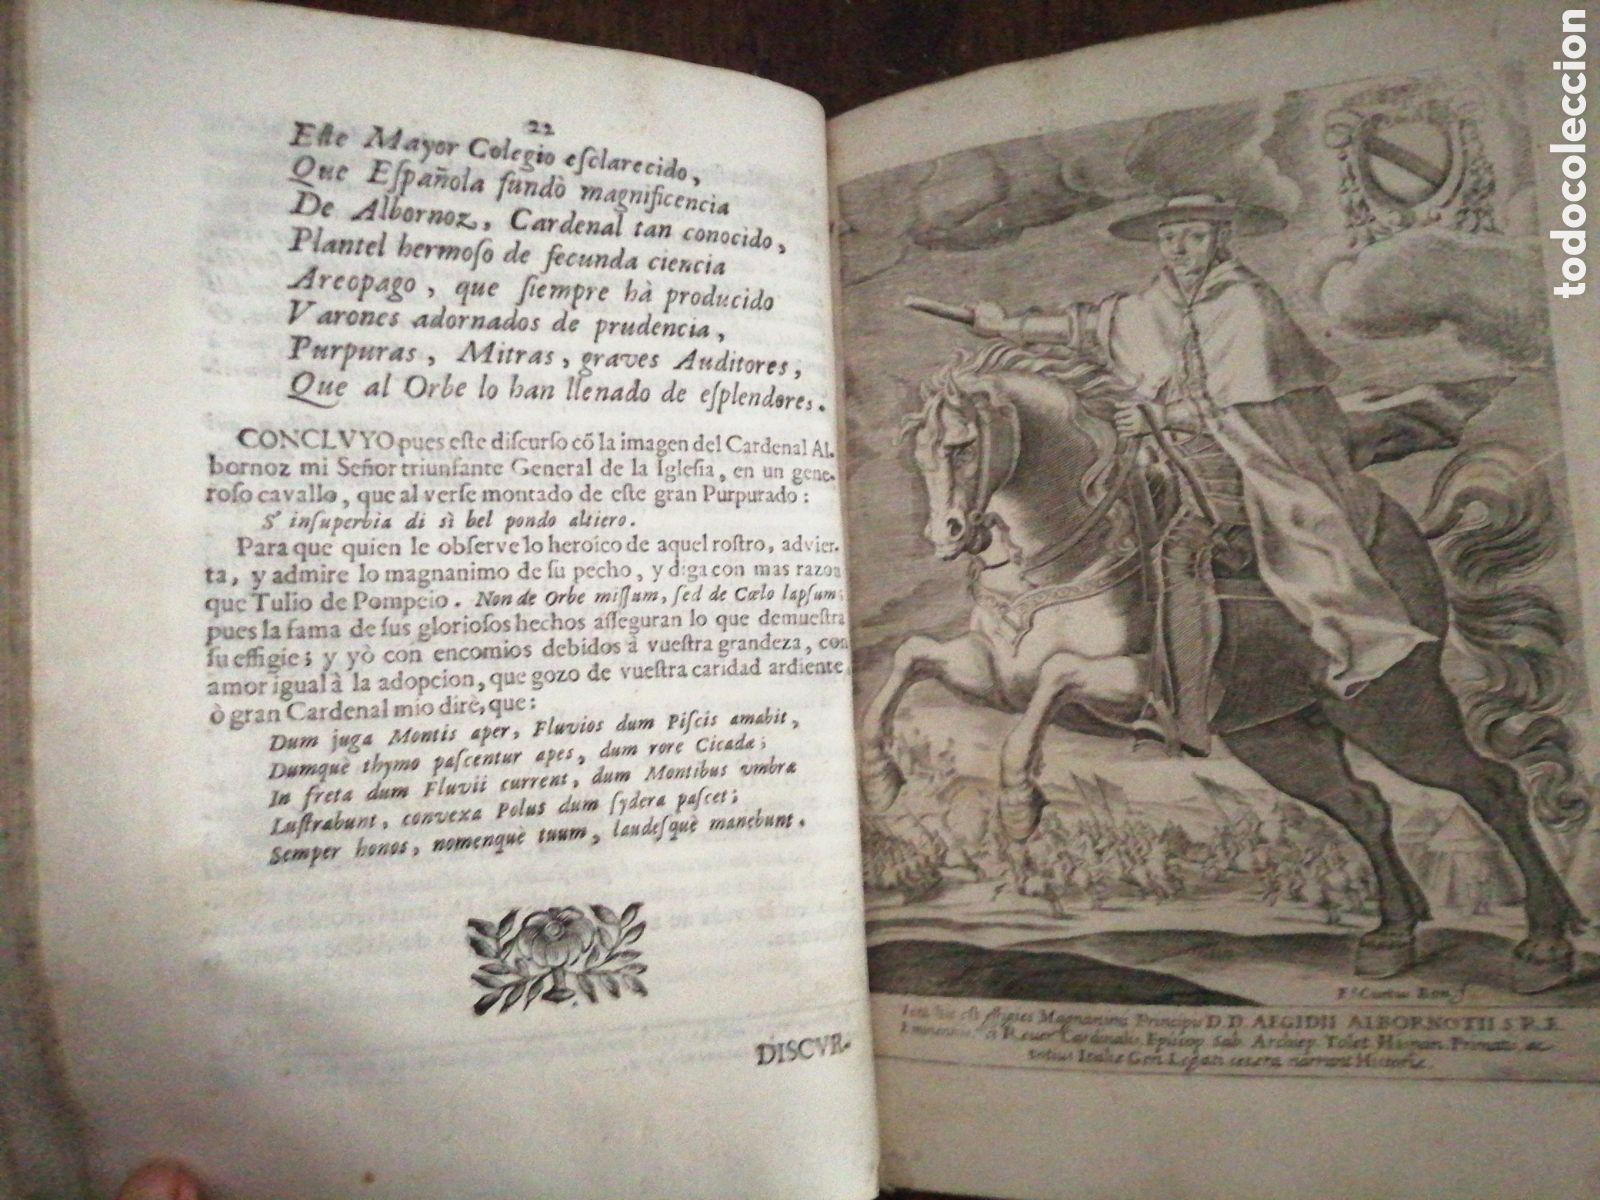 22
Eſte Mayor Colegio eſclarecido,
Que Eſpañola fundò magnificencia
De Albornoz, Cardenal tan conocido,
Plantel hermoſo de fecunda ciencia
Areopago, que ſiempre hà producido
Varones adornados de prudencia,
Purpuras, Mitras, graves Auditores,
Que al Orbe lo han llenado de eſplendores.
CONCLVYO pues eſte diſcurſo cõ la imagen del Cardenal Al-
bornoz mi Señor triunfante General de la Igleſia, en un gene-
roſo cavallo, que al verſe montado de eſte gran Purpurado:
S' inſuperbia di sì bel pondo altiero.
Para que quien le obſerve lo heroico de aquel roſtro, advier-
ta, y admire lo magnanimo de ſu pecho, y diga con mas razon
que Tulio de Pompeio. Non de Orbe miſſum, ſed de Cœlo lapſum;
pues la fama de ſus glorioſos hechos aſſeguran lo que demueſtra
ſu effigie; y yò con encomios debidos à vueſtra grandeza, con
amor igual à la adopcion, que gozo de vueſtra caridad ardiente
ò gran Cardenal mio dirè, que:
Dum juga Montis aper, Fluvios dum Piſcis amabit,
Dumquè thymo paſcentur apes, dum rore Cicadæ;
In freta dum Fluvii current, dum Montibus umbræ
Luſtrabunt, convexa Polus dum ſydera paſcet;
Semper honos, nomenquè tuum, laudeſquè manebunt.
DISCVR-
F.s Curtus Bon. f.
est effigies Magnanimi Principis D. D. AEGIDII ALBORNOTII S. R. E.
Eminentiss. et Reuer. Cardinalis, Episcop. Sab. Archiep. Tolet. Hispan. Primatis, ac
totius Italiæ Gen. Legati cetera narrant Historiæ.
todocoleccion